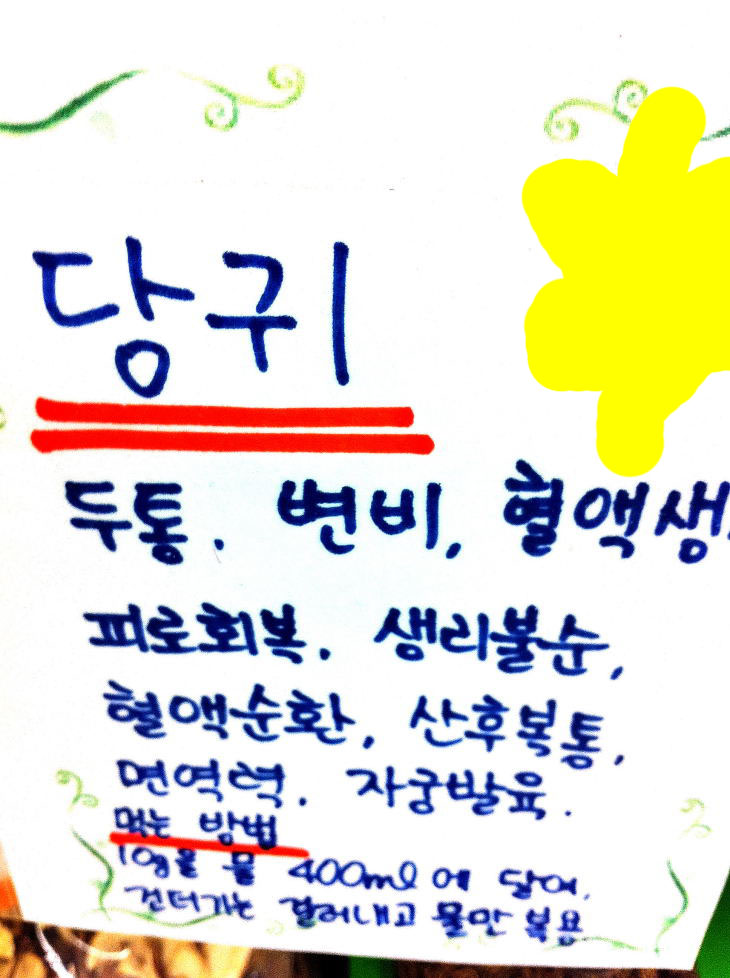 당귀
두통. 변비, 혈액생
피로회복. 생리불순,
혈액순환, 산후복통,
면역력. 자궁발육.
먹는 방법
10g을 물 400ml에 달여.
건더기는 걸러내고 물만 복용